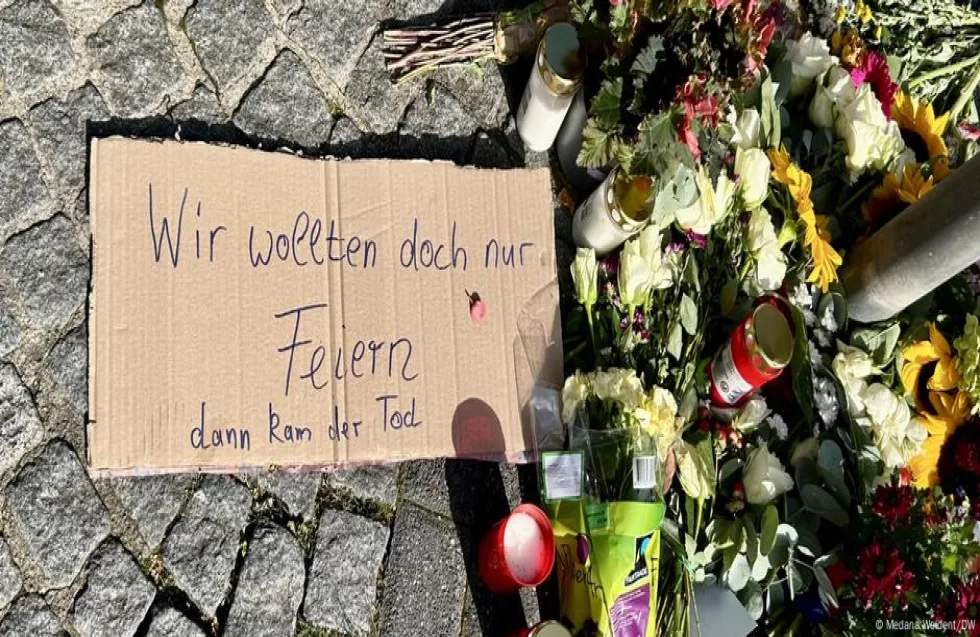 Wir wollten doch nur
Feiern
dann kam der Tod
© Medana Weident/DW